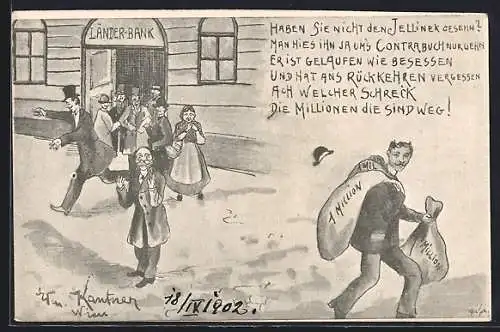 LÄNDER-BANK
HABEN SIE NICHT DEN JELLINEK GESEHN?
MAN HIES IHN JA UM'S CONTRABUCH NUR GEHN
ER IST GELAUFEN WIE BESESSEN
UND HAT ANS RÜCKKEHREN VERGESSEN
ACH WELCHER SCHRECK
DIE MILLIONEN DIE SIND WEG!
MIL
1 MILLION
1 MILLION
Kantner
Wien
18/IV 1902.